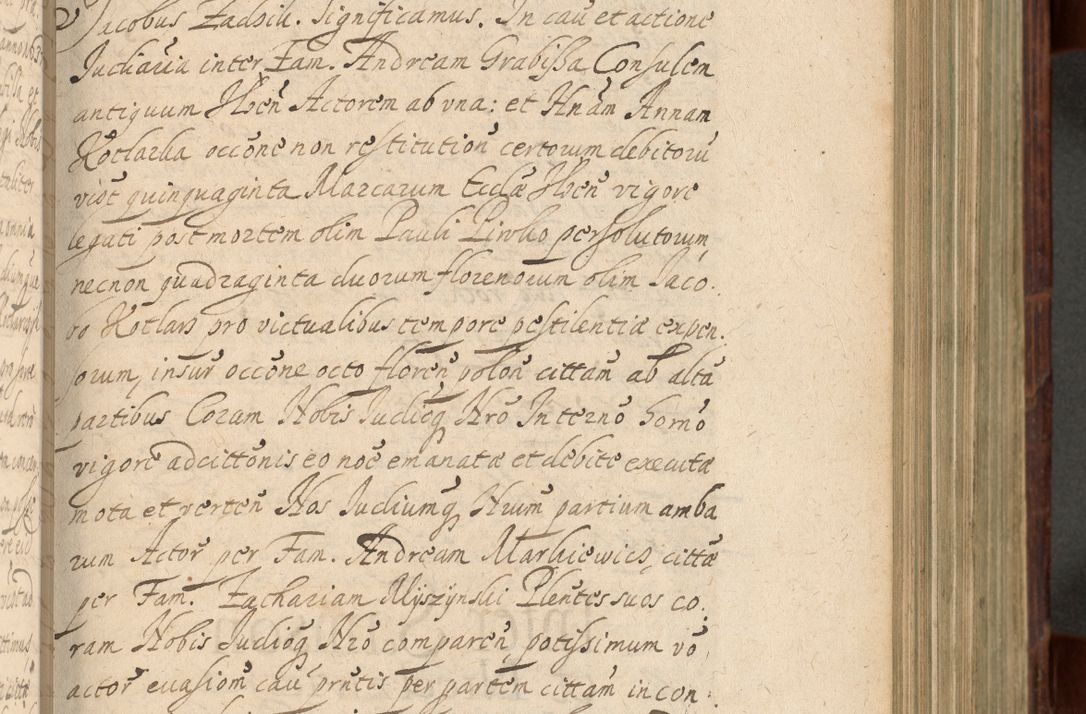 Jacobus Zadzik. Significamus. In cau et actione
Judiaria inter Fam. Andream Grabissa Consulem
antiquum Ilżen Actorem ab vna: et Hnam Annam
Kotlarka occone non restitution certorum debitoru
vidt quinquaginta Marcarum Eccla Ilżen vigore
legati post mortem olim Pauli Piwko persolutorum
necnon quadraginta duorum florenorum olim Jaco.
bo Kotlarz pro victualibus tempore pestilentiæ expen.
sorum, insur occone octo floren polon cittam ab alta
partibus Coram Nobis Judicq Nro In termo homo
vigore adcittonis eo noe emanatæ et debite executæ
mota et verten Nos Judiumq Nrum partium amba
rum Actor per Fam. Andream Markiewicz, cittæ
per Fam. Zachariam Myszynski Plentes suos co.
ram Nobis Judioq Nro comparen, potissimum vo
actor euasiom cau prntis per partem cittam in con.